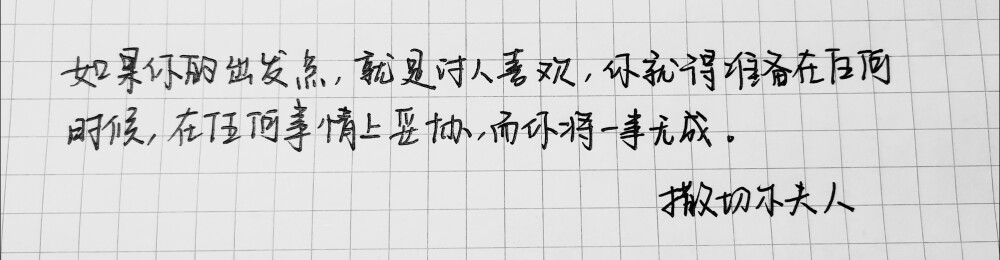 如果你的出发点，就是讨人喜欢，你就得准备在任何
时候，在任何事情上妥协，而你将一事无成。
撒切尔夫人